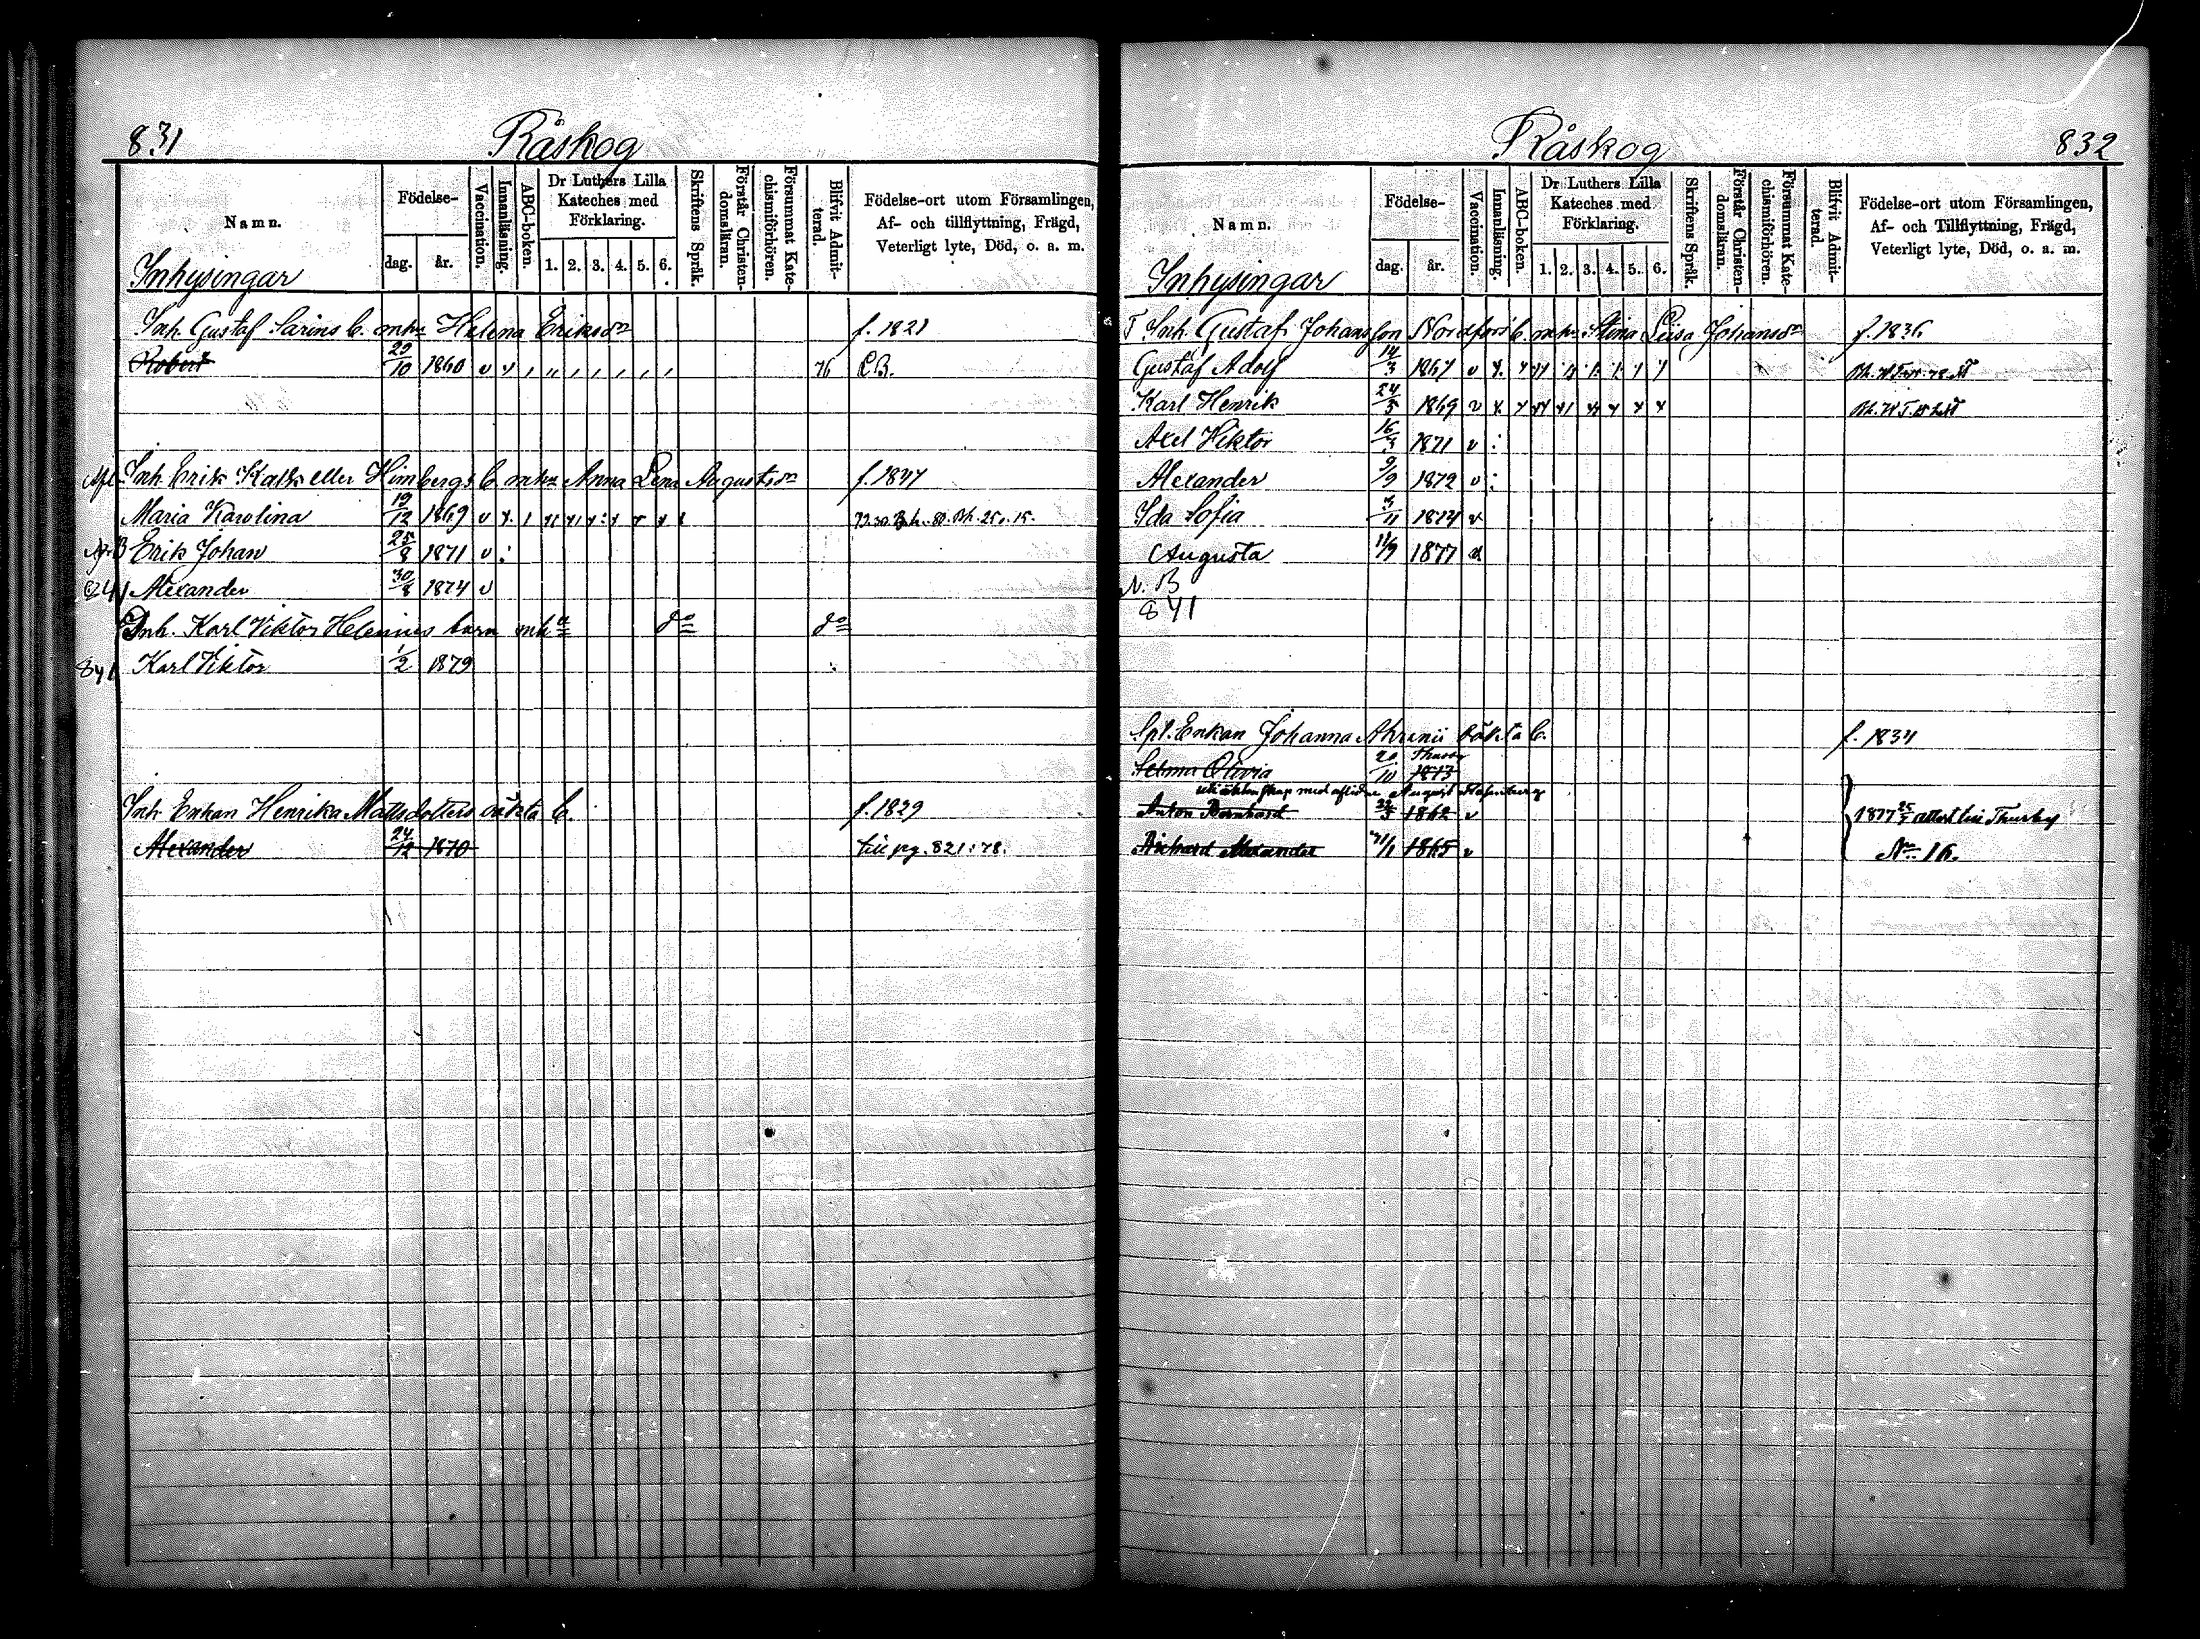 831
Råskog
Namn.
Födelse-
dag.
år.
Vaccination.
Innanläsning.
ABC-boken.
Dr Luthers Lilla
Kateches med
Förklaring.
1. 2. 3. 4. 5. 6.
Skriftens Språk.
Förstår Christen-
domsläran.
Försummat Kate-
chismiförhören.
Blifvit Admit-
terad.
Födelse-ort utom Församlingen,
Af- och tillflyttning, Frägd,
Veterligt lyte, Död, o. a. m.
Inhysingar
Inh. Gustaf Sarins b. mhu Helena Eriksdr f. 1821
Robert 29/10 1860 v 76 C.B.
Inh. Erik Kalk eller Himbergs b. mhu Anna Lena Augustsdr f. 1847
Maria Karolina 19/12 1869 v
Erik Johan 25/8 1871 v
Alexander 30/8 1874 v
Inh. Karl Viktor Helenius barn mha do do
841 Karl Viktor 1/2 1879
Inh. Enkan Henrika Mattsdotters oäkta b. f. 1829
Alexander 24/12 1870 till pg. 821:78.
Råskog
832
Namn.
Födelse-
dag.
år.
Vaccination.
Innanläsning.
ABC-boken.
Dr Luthers Lilla
Kateches med
Förklaring.
1. 2. 3. 4. 5. 6.
Skriftens Språk.
Förstår Christen-
domsläran.
Försummat Kate-
chismiförhören.
Blifvit Admit-
terad.
Födelse-ort utom Församlingen,
Af- och Tillflyttning, Frägd,
Veterligt lyte, Död, o. a. m.
Inhysingar
Inh. Gustaf Johansson Nordfors b. mhu Stina Lisa Johansdr f. 1836
Gustaf Adolf 14/3 1867 v
Karl Henrik 24/5 1869 v
Axel Viktor 1871 v
Alexander 9/9 1872 v
Ida Sofia 3/11 1874 v
Augusta 11/9 1877
N.B
841
Spl. Enkan Johanna Ahrenii oäkta b. f. 1834
Selma Olivia 20/10 1873
i äktenskap med aflidne August
Anton Bernhard 1862 v
1877 25/5 attest till Thusby
Richard Alexander 1865 v
No 16.